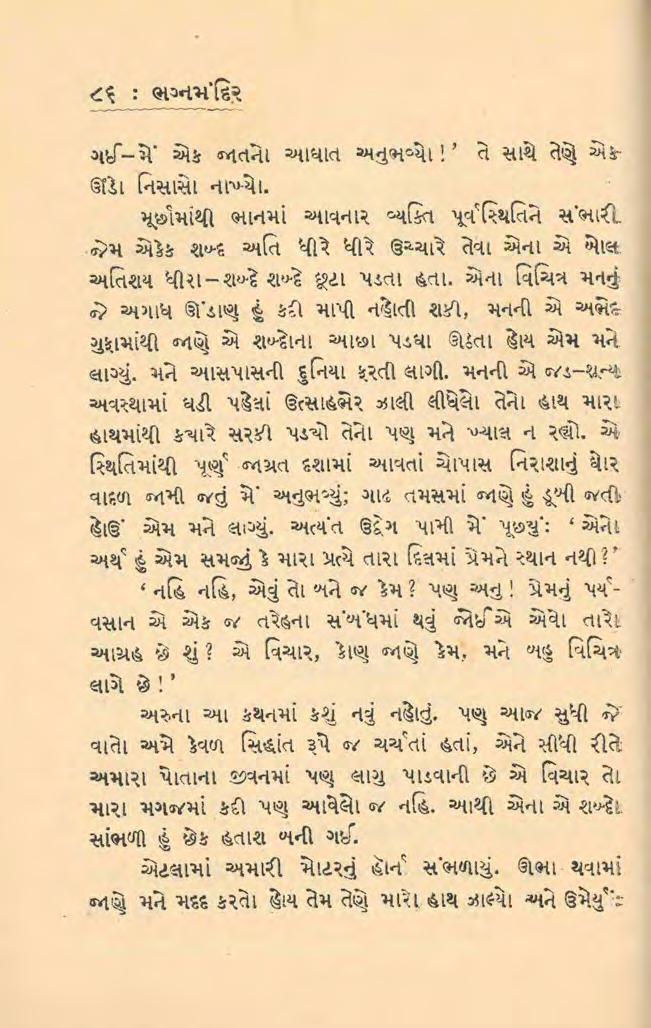 ૮૬ : ભગ્નમંદિર
ગઈ–મેં એક જાતનો આઘાત અનુભવ્યો!’ તે સાથે તેણે એક
ઊંડો નિસાસો નાખ્યો.
મૂર્છામાંથી ભાનમાં આવનાર વ્યક્તિ પૂર્વસ્થિતિને સંભારી
જેમ એકેક શબ્દ અતિ ધીરે ધીરે ઉચ્ચારે તેવા એના એ બોલ
અતિશય ધીરા–શબ્દે શબ્દે છૂટા પડતા હતા. એના વિચિત્ર મનનું
જે અગાધ ઊંડાણ હું કદી માપી નહોતી શકી, મનની એ અભેદ
ગુફામાંથી જાણે એ શબ્દોના આછા પડઘા ઊઠતા હોય એમ મને
લાગ્યું. મને આસપાસની દુનિયા ફરતી લાગી. મનની એ જડ–શૂન્ય
અવસ્થામાં ઘડી પહેલાં ઉત્સાહભેર ઝાલી લીધેલો તેનો હાથ મારા
હાથમાંથી કયારે સરકી પડયો તેનો પણ મને ખ્યાલ ન રહ્યો. એ
સ્થિતિમાંથી પૂર્ણ જાગ્રત દશામાં આવતાં ચોપાસ નિરાશાનું ઘોર
વાદળ જામી જતું મેં અનુભવ્યું; ગાઢ તમસમાં જાણે હું ડૂબી જતી
હોઉં એમ મને લાગ્યું. અત્યંત ઉદ્વેગ પામી મેં પૂછયું: ‘એનો
અર્થ હું એમ સમજું કે મારા પ્રત્યે તારા દિલમાં પ્રેમને સ્થાન નથી?’
‘નહિ નહિ, એવું તો બને જ કેમ? પણ અનુ! પ્રેમનું પર્ય-
વસાન એ એક જ તરેહના સંબંધમાં થવું જોઈએ એવો તારો
આગ્રહ છે શું? એ વિચાર, કોણ જાણે કેમ, મને બહુ વિચિત્ર
લાગે છે!’
અરુના આ કથનમાં કશું નવું નહોતું. પણ આજ સુધી જે
વાતો અમે કેવળ સિદ્ધાંત રૂપે જ ચર્ચતાં હતાં, એને સીધી રીતે
અમારા પોતાના જીવનમાં પણ લાગુ પાડવાની છે એ વિચાર તો
મારા મગજમાં કદી પણ આવેલો જ નહિ. આથી એના એ શબ્દો
સાંભળી હું છેક હતાશ બની ગઈ.
એટલામાં અમારી મોટરનું હોર્ન સંભળાયું. ઊભા થવામાં
જાણે મને મદદ કરતો હોય તેમ તેણે મારો હાથ ઝાલ્યો અને ઉમેર્યું: